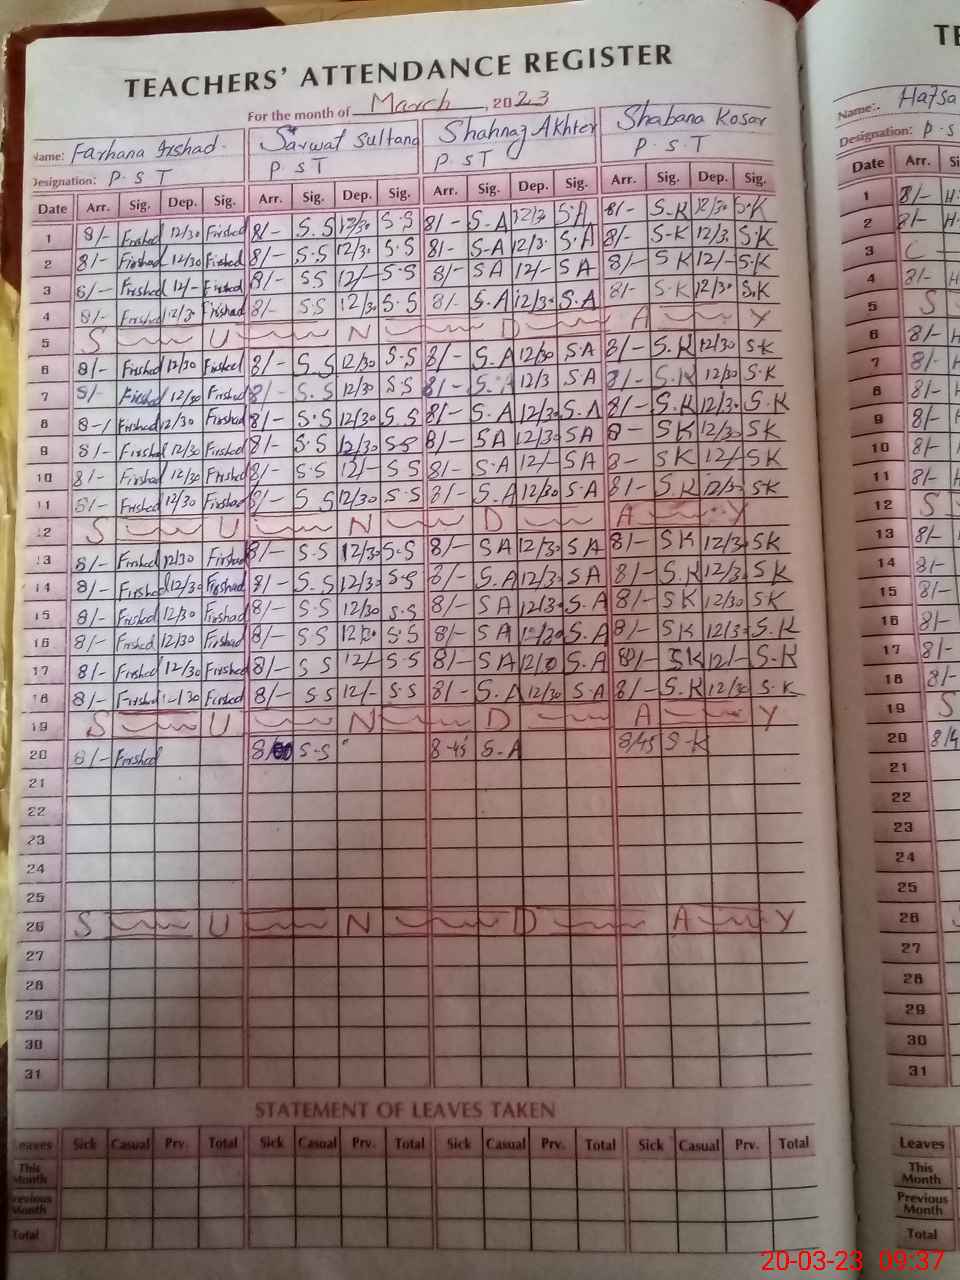 TEACHERS' ATTENDANCE REGISTER
For the month of March, 2023
Name: Farhana Irshad. Sarwat Sultana Shahnaz Akhter Shabana Kosar
Designation: P.S.T P.S.T P.S.T P.S.T
Date Arr. Sig. Dep. Sig. Arr. Sig. Dep. Sig. Arr. Sig. Dep. Sig. Arr. Sig. Dep. Sig.
1 8/- 12/30 8/- S.S 12/30 S.S 8/- S.A 12/3 S.A 8/- S.K 12/30 S.K
2 8/- 12/30 8/- S.S 12/30 S.S 8/- S-A 12/3. S.A 8/- S-K 12/3. S.K
3 8/- 12/- 8/- SS 12/- S-S 8/- SA 12/- SA 8/- SK 12/- S.K
4 8/- 12/3. 8/- S.S 12/30 S.S 8/- S.A 12/30 S.A 8/- S.K 12/30 S.K
5 S U N D A Y
6 8/- 12/30 8/- S.S 12/30 S.S 8/- S.A 12/30 S.A 8/- S.K 12/30 S.K
7 8/- 12/30 8/- S.S 12/30 S.S 8/- S.A 12/3 S.A 8/- S.K 12/30 S.K
8 8-/ 12/30 8/- S.S 12/30 S.S 8/- S.A 12/30 S.A 8/- S.K 12/30 S.K
9 8/- 12/30 8/- S.S 12/30 S.S 8/- SA 12/30 SA 8- SK 12/30 SK
10 8/- 12/30 8/- S.S 12/- SS 8/- S.A 12/- SA 8- SK 12/- SK
11 8/- 12/30 8/- S.S 12/30 S.S 8/- S.A 12/30 S.A 8/- S.K 12/30 S.K
12 S U N D A Y
13 8/- 12/30 8/- S.S 12/30 S.S 8/- SA 12/30 SA 8/- SK 12/30 SK
14 8/- 12/30 8/- S.S 12/30 S.S 8/- S.A 12/30 SA 8/- S.K 12/30 SK
15 8/- 12/30 8/- S.S 12/30 S.S 8/- SA 12/30 S.A 8/- SK 12/30 SK
16 8/- 12/30 8/- SS 12/30 S.S 8/- SA S.A 8/- SK 12/30 S.K
17 8/- 12/30 8/- SS 12/- S-S 8/- SA S.A 8/- SK 12/- S.K
18 8/- 12/30 8/- SS 12/- S.S 8/- S.A 12/30 S.A 8/- S.K 12/30 S.K
19 S U N D A Y
20 8/- S.S 8-45 S.A 8/45 S-K
21
22
23
24
25
26 S U N D A Y
27
28
29
30
31
STATEMENT OF LEAVES TAKEN
Leaves Sick Casual Prv. Total Sick Casual Prv. Total Sick Casual Prv. Total Sick Casual Prv. Total
This Month
Previous Month
Total
Name:. Hafsa
Designation: P.S
Date Arr.
1 8/-
2 8/-
3 C
4 8/-
5 S
6 8/-
7 8/-
8 8/-
9 8/-
10 8/-
11 8/-
12 S
13 8/-
14 8/-
15 8/-
16 8/-
17 8/-
18 8/-
19 S
20 8/4
21
22
23
24
25
26
27
28
29
30
31
Leaves
This Month
Previous Month
Total
20-03-23 09:37